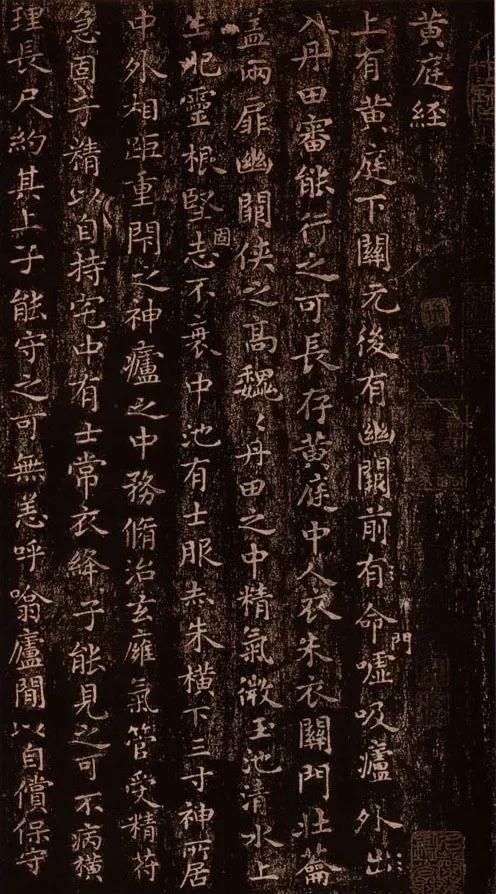 黄庭经
上有黄庭下關元後有幽闕前有命門嘘吸廬外出
入丹田審能行之可長存黄庭中人衣朱衣關門壮蘥
盖兩扉幽闕侠之髙巍〻丹田之中精氣微玉池清水上
生肥靈根堅固志不衰中池有士服赤朱横下三寸神所居
中外相距重閇之神廬之中務脩治玄廱氣管受精符
急固子精以自持宅中有士常衣絳子能見之可不病横
理長尺約其上子能守之可無恙呼噏廬間以自償保守